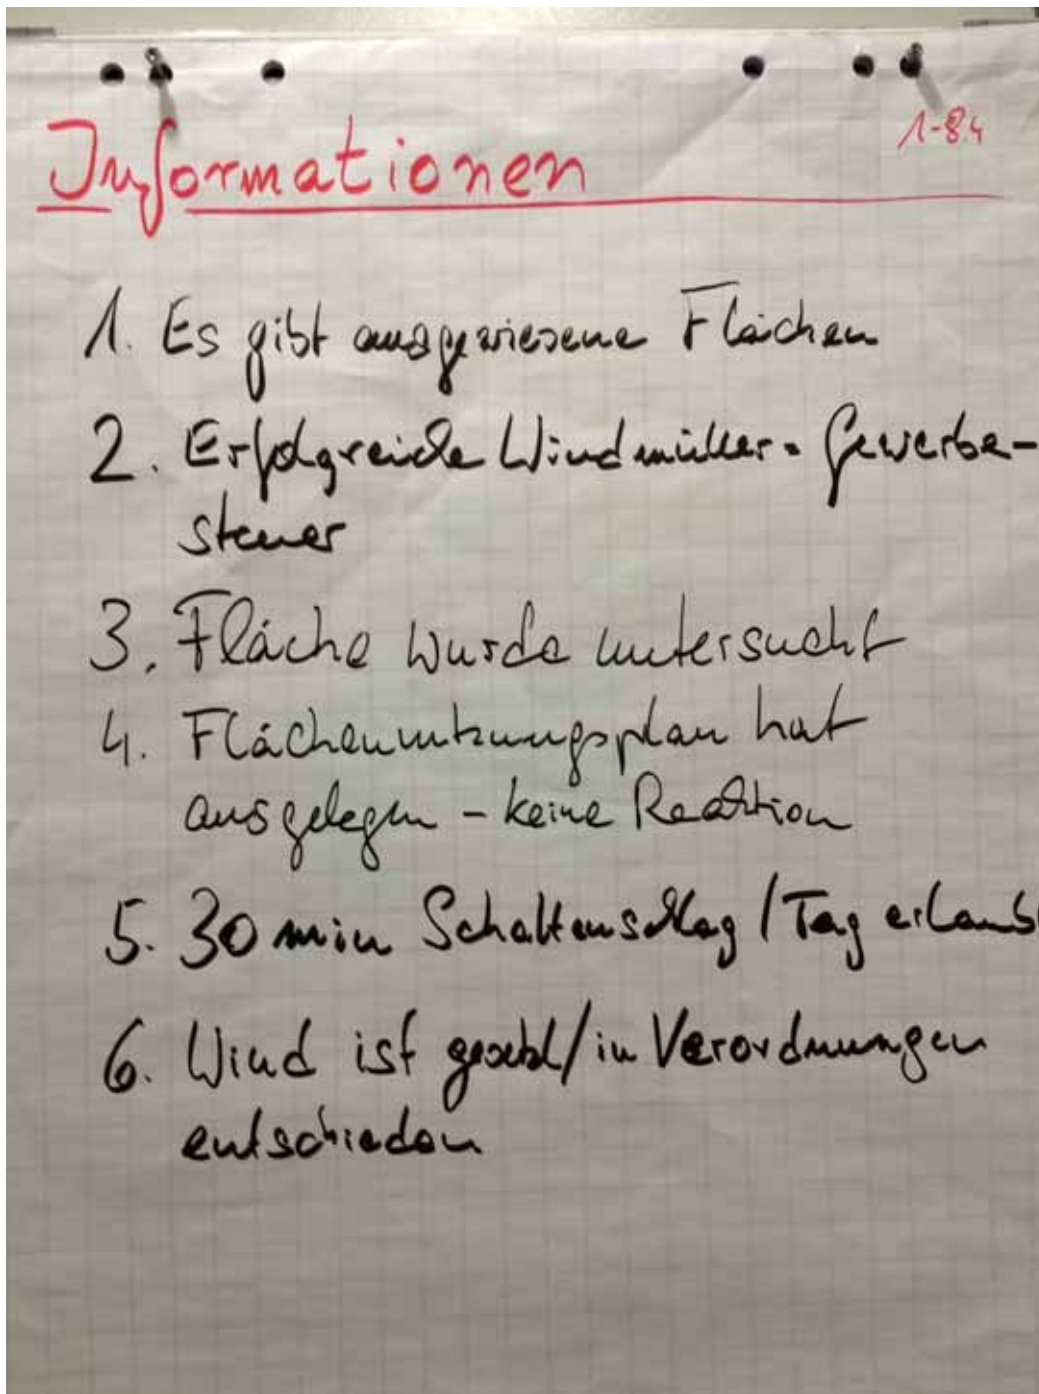 Informationen
1-84
1. Es gibt ausgewiesene Flächen
2. Erfolgreiche Windmüller = Gewerbe-
steuer
3. Fläche wurde untersucht
4. Flächennutzungsplan hat
ausgelegen - keine Reaktion
5. 30 min Schattenschlag / Tag erlaub
6. Wind ist / in Verordnungen
entschieden